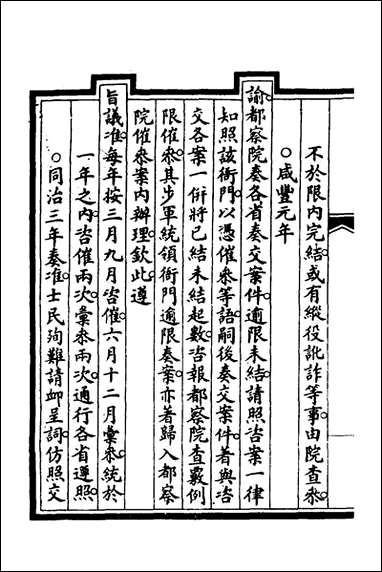 不於限內完結或有縱役訛詐等事由院查叅
○咸豐元年
諭都察院奏各省奏交案件逾限未結請照咨案一律
知照該衙門以憑催叅等語嗣後奏交案件著與咨
交各案一倂將已結未結起數咨報都察院查覈例
限催叅其步軍統領衙門逾限奏案亦著歸入都察
院催叅案內辦理欽此遵
旨議准每年按三月九月咨催六月十二月彙叅統於
一年之內咨催兩次彙叅兩次通行各省遵照
○同治三年奏准士民殉難請卹呈詞仿照交